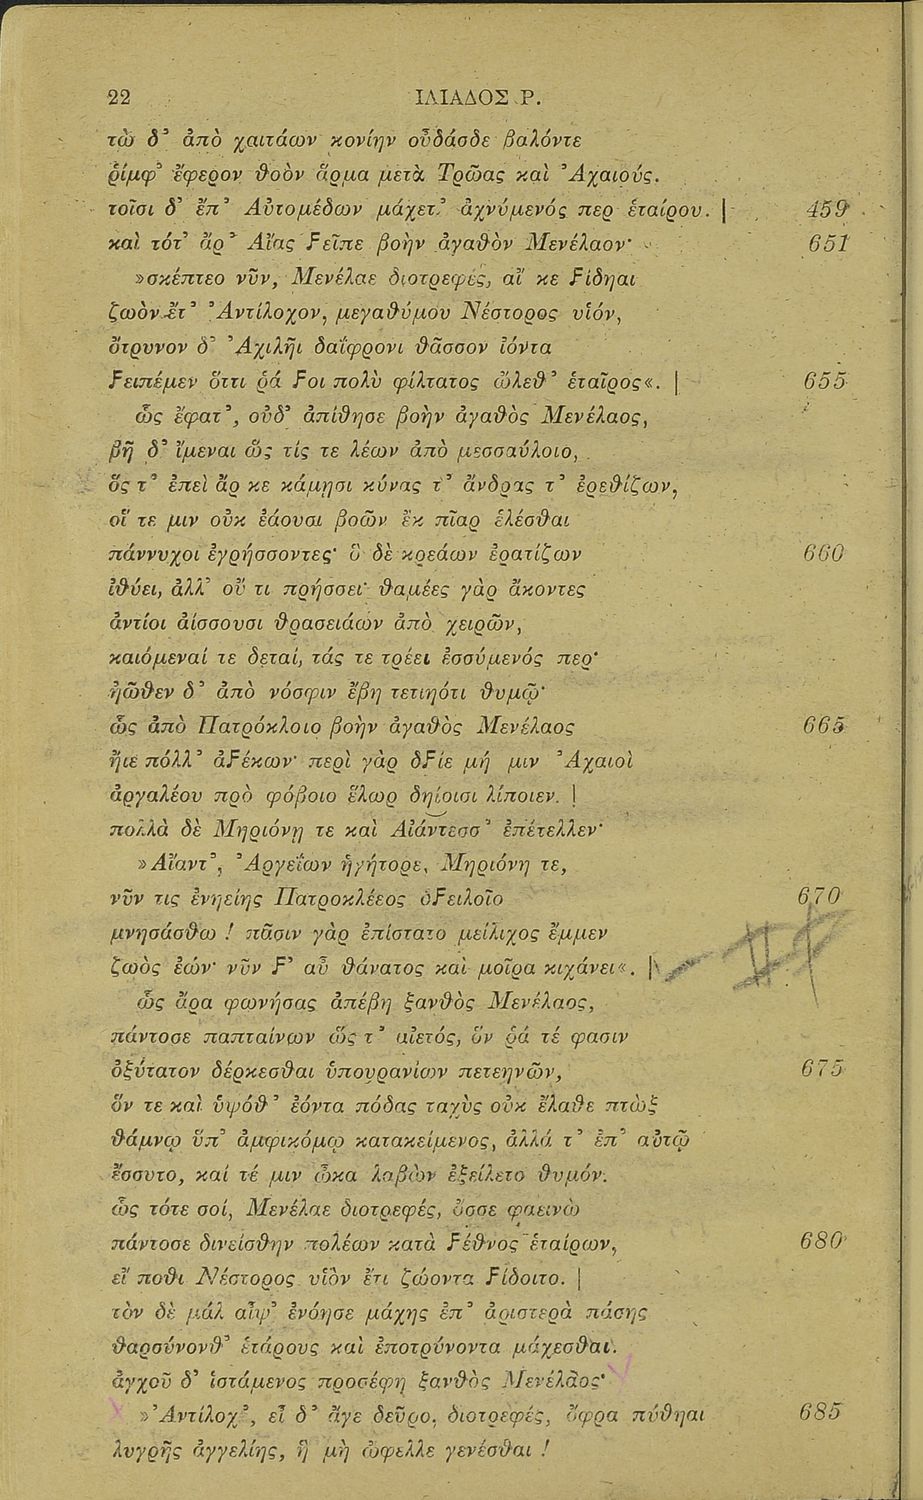 22 ΙΛΙΑΔΟΣ Ρ.
τὼ δ᾽ ἀπὸ χαιτάων κονίην οὖδάσδε βαλόντε
ῥίμφ᾽ ἔφερον θοὸν ἅρμα μετὰ Τρῶας καὶ Ἀχαιούς.
τοῖσι δ᾽ ἔπ᾽ Αὐτομέδων μάχετ᾽ ἀχνύμενός περ ἑταίρου. | 459
καὶ τότ᾽ ἄρ᾽ Αἴας ϝεῖπε βοὴν ἀγαθὸν Μενέλαον· 651
»σκέπτεο νῦν, Μενέλαε διοτρεφές, αἴ κε ϝίδηαι
ζωὸν ἔτ᾽ Ἀντίλοχον, μεγαθύμου Νέστορος υἱόν,
ὄτρυνον δ᾽ Ἀχιλῆι δαΐφρονι θᾶσσον ἰόντα
ϝειπέμεν ὅττι ῥά ϝοι πολὺ φίλτατος ὤλεθ᾽ ἑταῖρος«. | 655
ὣς ἔφατ᾽, οὐδ᾽ ἀπίθησε βοὴν ἀγαθὸς Μενέλαος,
βῆ δ᾽ ἴμεναι ὥς τίς τε λέων ἀπὸ μεσσαύλοιο,
ὅς τ᾽ ἐπεὶ ἄρ κε κάμησι κύνας τ᾽ ἄνδρας τ᾽ ἐρεθίζων,
οἵ τε μιν οὐκ ἐάουσι βοῶν ἐκ πῖαρ ἑλέσθαι
πάννυχοι ἐγρήσσοντες· ὃ δὲ κρεάων ἐρατίζων 660
ἰθύει, ἀλλ᾽ οὔ τι πρήσσει· θαμέες γὰρ ἄκοντες
ἀντίοι ἀίσσουσι θρασειάων ἀπὸ χειρῶν,
καιόμεναί τε δεταί, τάς τε τρέει ἐσσύμενός περ·
ἠῶθεν δ᾽ ἀπὸ νόσφιν ἔβη τετιηότι θυμῷ·
ὣς ἀπὸ Πατρόκλοιο βοὴν ἀγαθὸς Μενέλαος 665
ἤιε πόλλ᾽ ἀϝέκων· περὶ γὰρ δϝίε μή μιν Ἀχαιοὶ
ἀργαλέου πρὸ φόβοιο ἕλωρ δηίοισι λίποιεν. |
πολλὰ δὲ Μηριόνῃ τε καὶ Αἰάντεσσ᾽ ἐπέτελλεν·
»Αἴαντ᾽, Ἀργείων ἡγήτορε, Μηριόνη τε,
νῦν τις ἐνηείης Πατροκλέεος δϝειλοῖο 670
μνησάσθω! πᾶσιν γὰρ ἐπίστατο μείλιχος ἔμμεν
ζωὸς ἐών· νῦν ϝ᾽ αὖ θάνατος καὶ μοῖρα κιχάνει«. |
ὣς ἄρα φωνήσας ἀπέβη ξανθὸς Μενέλαος,
πάντοσε παπταίνων ὥς τ᾽ αἰετός, ὅν ῥά τέ φασιν
ὀξύτατον δέρκεσθαι ὑπουρανίων πετεηνῶν, 675
ὅν τε καὶ ὑψόθ᾽ ἐόντα πόδας ταχὺς οὐκ ἔλαθε πτὼξ
θάμνῳ ὕπ᾽ ἀμφικόμῳ κατακείμενος, ἀλλά τ᾽ ἐπ᾽ αὐτῷ
ἔσσυτο, καί τέ μιν ὦκα λαβὼν ἐξείλετο θυμόν.
ὣς τότε σοί, Μενέλαε διοτρεφές, ὄσσε φαεινὼ
πάντοσε δινείσθην πολέων κατὰ ϝέθνος ἑταίρων, 680
εἴ ποθι Νέστορος υἱὸν ἔτι ζώοντα ϝίδοιτο. |
τὸν δὲ μάλ᾽ αἶψ᾽ ἐνόησε μάχης ἐπ᾽ ἀριστερὰ πάσης
θαρσύνονθ᾽ ἑτάρους καὶ ἐποτρύνοντα μάχεσθαι.
ἀγχοῦ δ᾽ ἱστάμενος προσέφη ξανθὸς Μενέλαος·
»Ἀντίλοχ᾽, εἰ δ᾽ ἄγε δεῦρο, διοτρεφές, ὄφρα πύθηαι 685
λυγρῆς ἀγγελίης, ἣ μὴ ὤφελλε γενέσθαι!